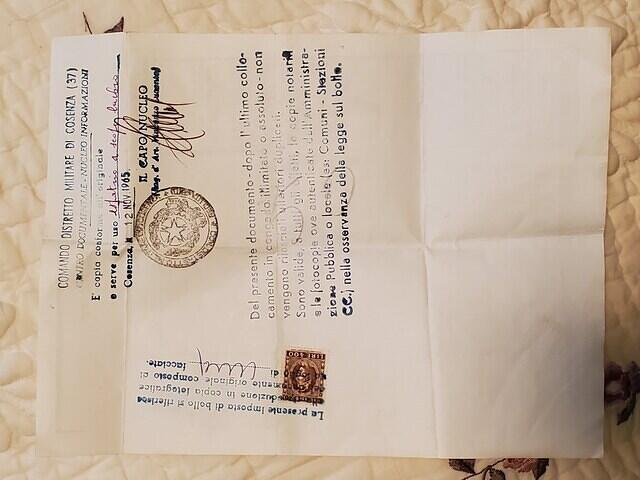 COMANDO DISTRETTO MILITARE DI COSENZA (37)
CENTRO DOCUMENTALE - NUCLEO INFORMAZIONI
E' copia conforme all'originale
e serve per uso
Cosenza, li 12 NOV 1965
IL CAPO NUCLEO
Del presente documento - dopo l'ultimo collo-
camento in congedo illimitato o assoluto - non
vengono rilasciati ulteriori duplicati.
Sono valide, a tutti gli effetti, le copie notarili
e le fotocopie ove autenticate dall'Amministra-
zione Pubblica o locale (es: Comuni - Stazioni
CC.) nella osservanza della legge sul bollo.
La presente imposta di bollo si riferisce
riproduzione in copia fotografica
documento originale composto di
di facciate.
LIRE 400